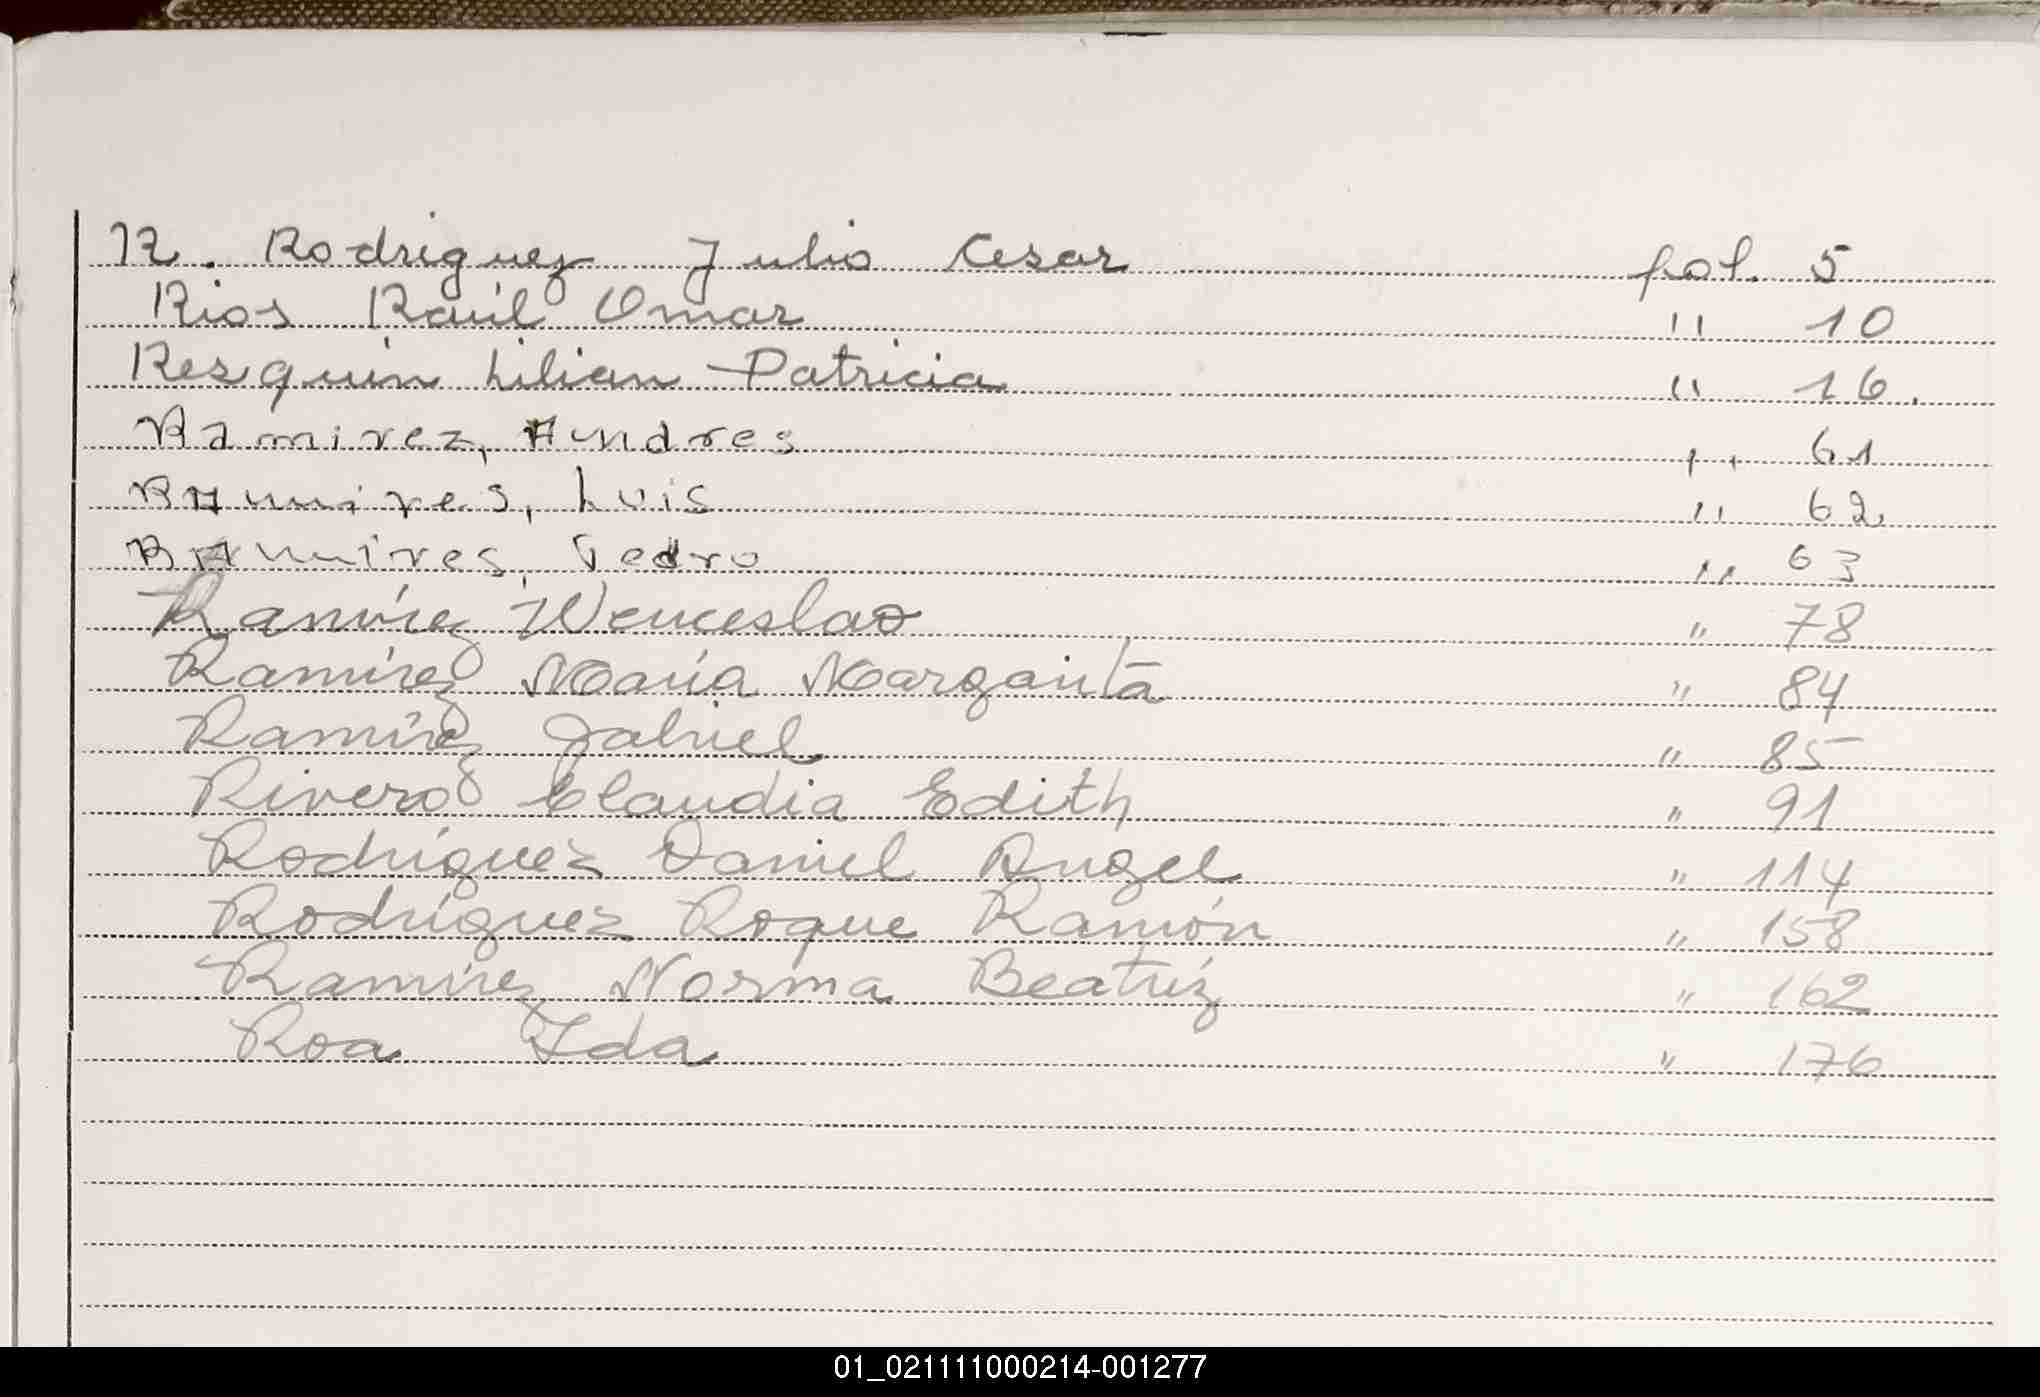 R. Rodriguez Julio Cesar fol. 5
Rios Raúl Omar " 10
Resquin Lilian Patricia " 16.
Ramirez, Andres " 61
Ramires, Luis " 62
Ramires, Pedro " 63
Ramírez Wenceslao " 78
Ramírez María Margarita " 84
Ramírez Gabriel " 85
Rivero Claudia Edith " 91
Rodríguez Daniel Angel " 114
Rodríguez Roque Ramón " 158
Ramírez Norma Beatríz " 162
Roa Ida " 176
01_021111000214-001277